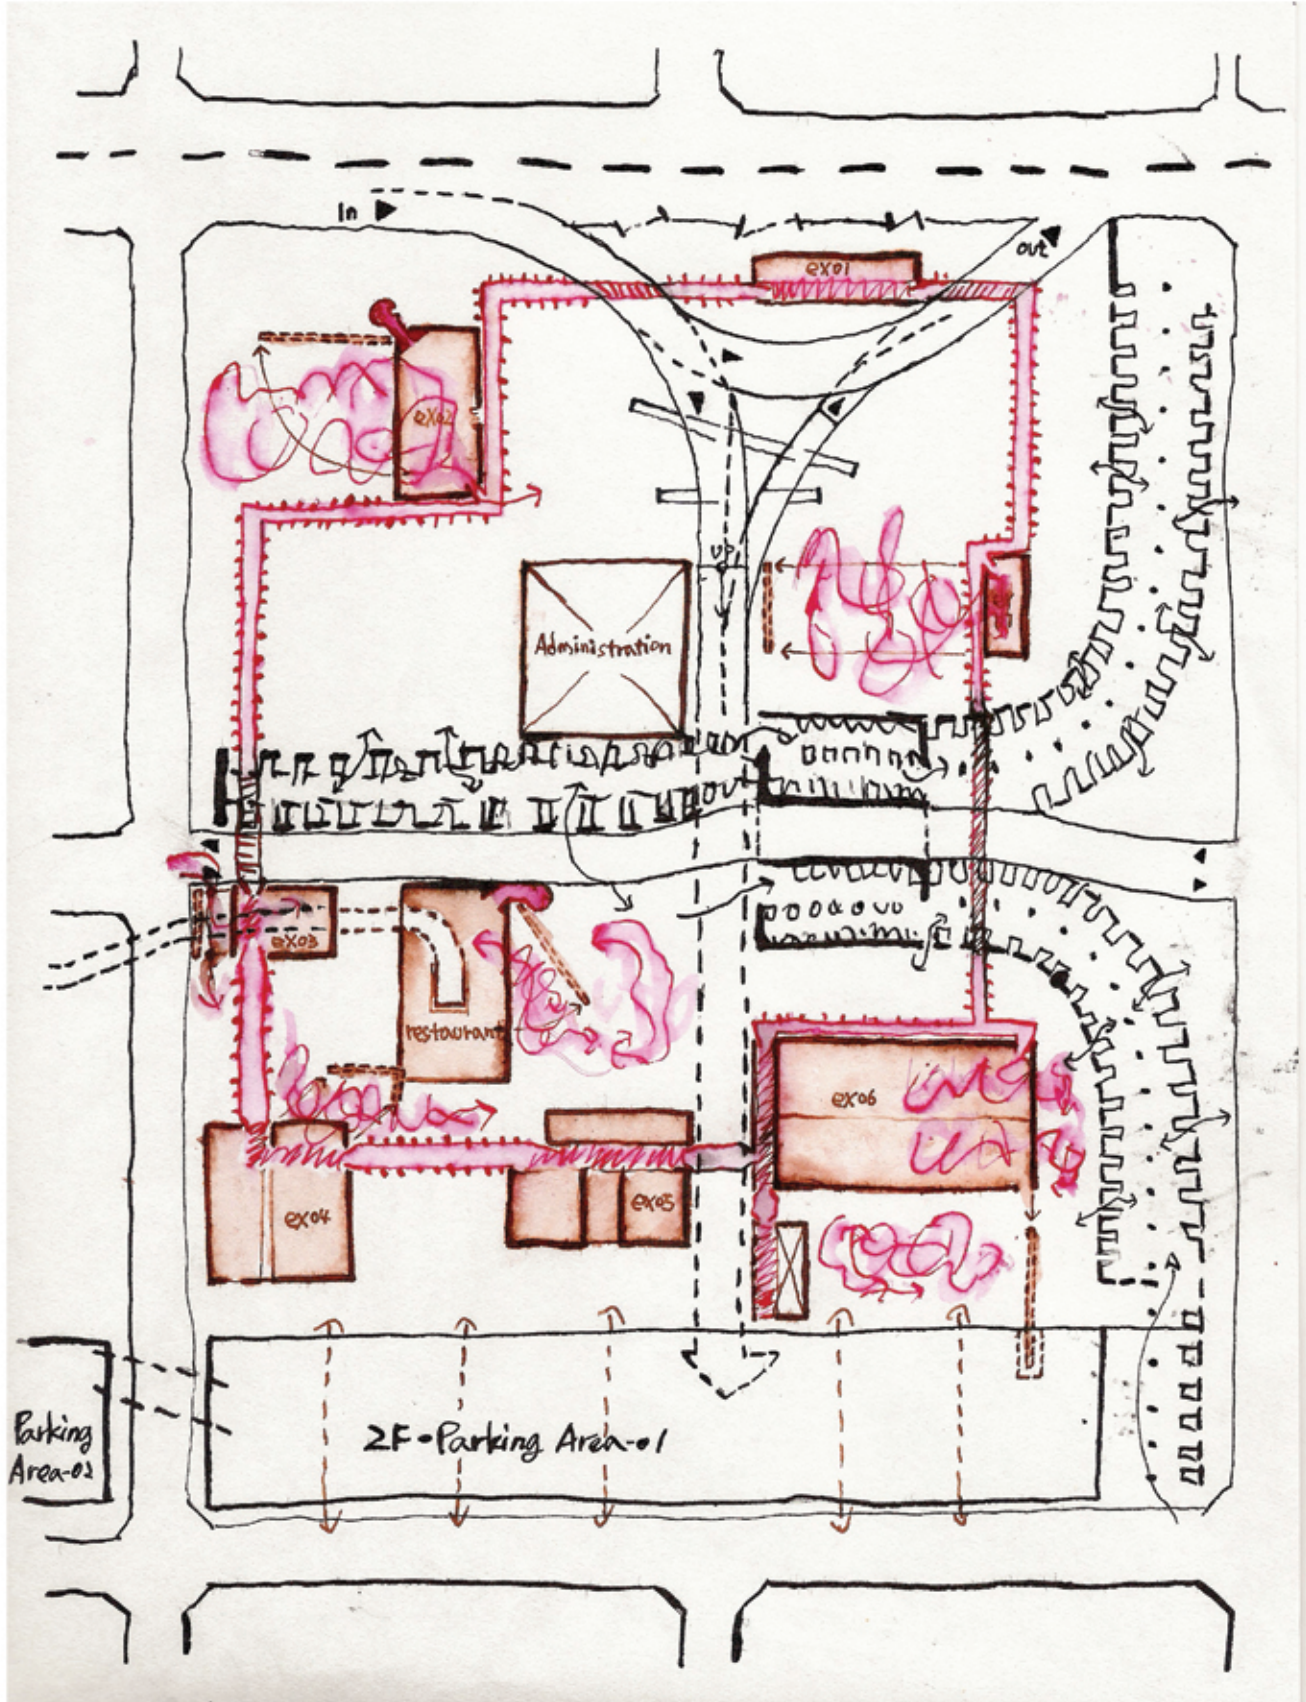 In
out
ex01
ex02
up
Administration
out
ex03
restaurant
ex06
ex04
ex05
2F·Parking Area-01
Parking
Area-02